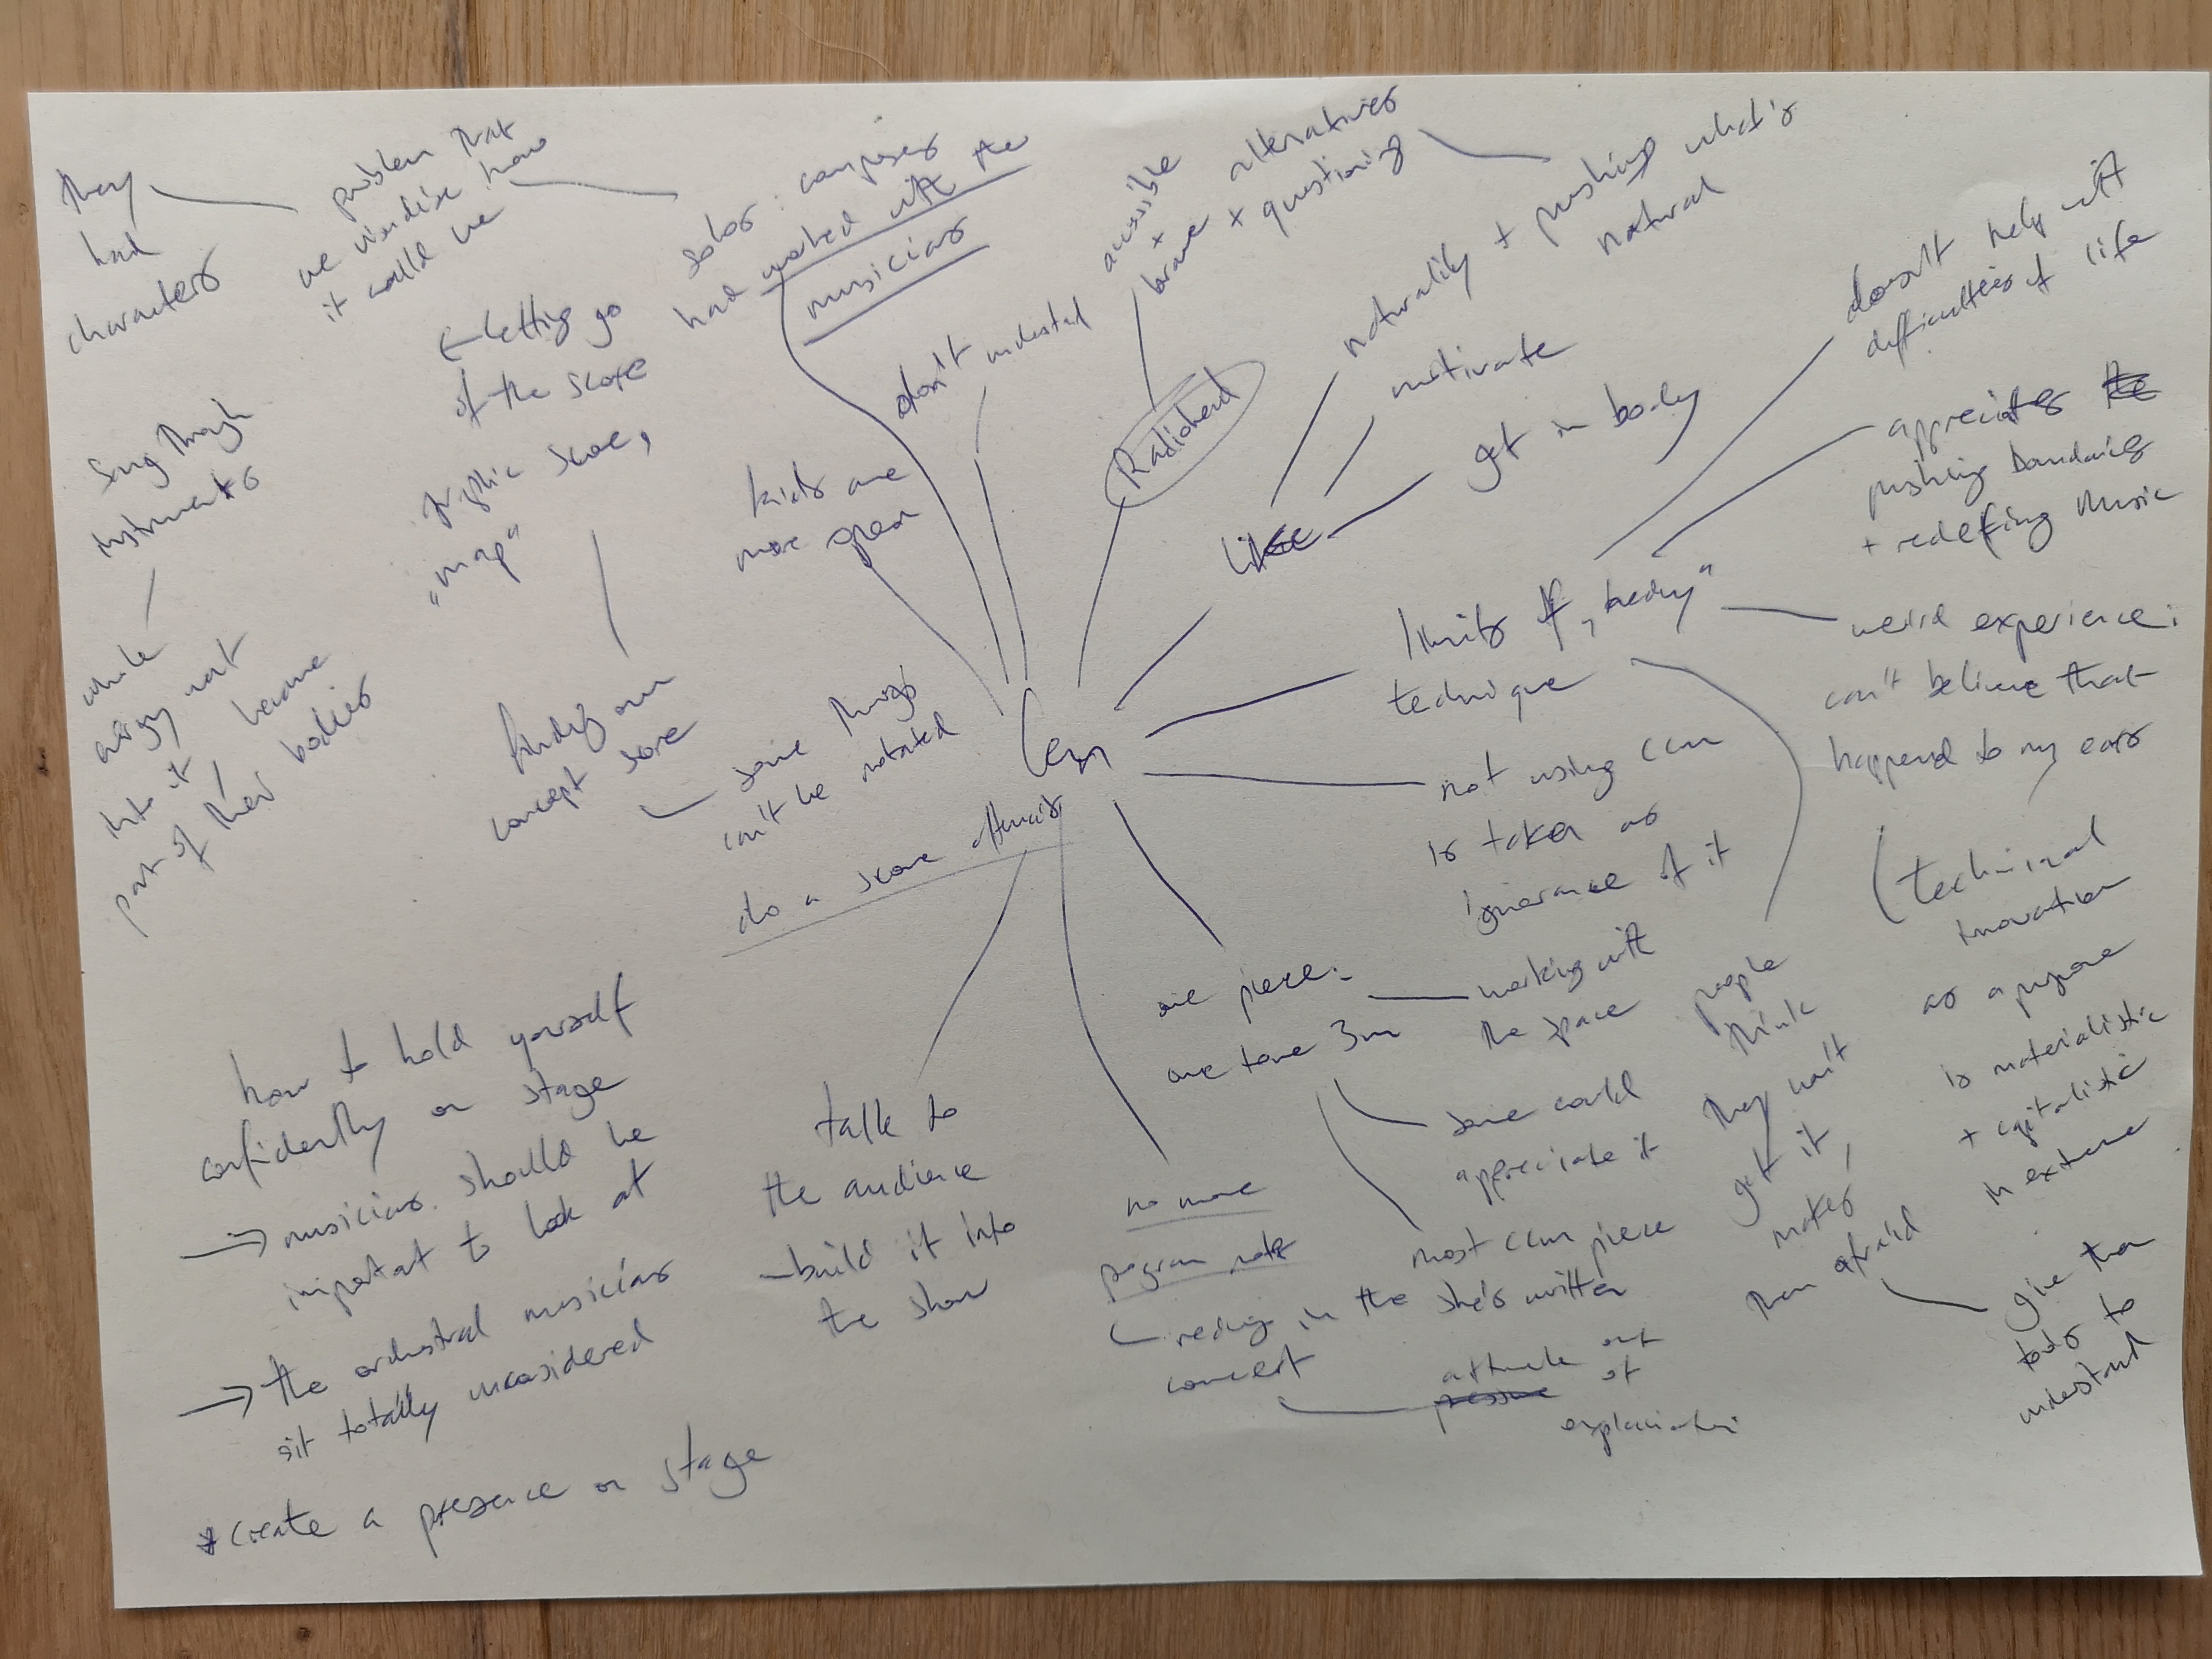 they
had
characters
problem that
we visualise how
it could be
solos: composer
had worked with the
musicians
← letting go
of the score
graphic score,
"map"
finding own
concept score
some things
can't be notated
do a score afterwards
sing through
instruments
whole
energy went
into it, became
part of their bodies
kids are
more open
don't understand
accessible
+ alternatives
brave + questioning
Radiohead
naturality + pushing what's
natural
motivate
get in body
like
ccm
limits of „beauty"
technique
doesn't help with
difficulties of life
appreciates the
pushing boundaries
+ redefining music
weird experience:
can't believe that
happened to my ears
(technical
innovation
as a purpose
is materialistic
+ capitalistic
in extreme
not using ccm
is taken as
ignorance of it
one piece:
one tone 3m
working with
the space
some could
appreciate it
most ccm piece
she's written
people
think
they won't
get it,
makes
them afraid
give them
tools to
understand
no more
program notes
reading in the
concert
attitude out
pressure of
explaination
talk to
the audience
– build it into
the show
how to hold yourself
confidently on stage
→ musicians should be
important to look at
→ the orchestral musicians
sit totally unconsidered
* create a presence on stage